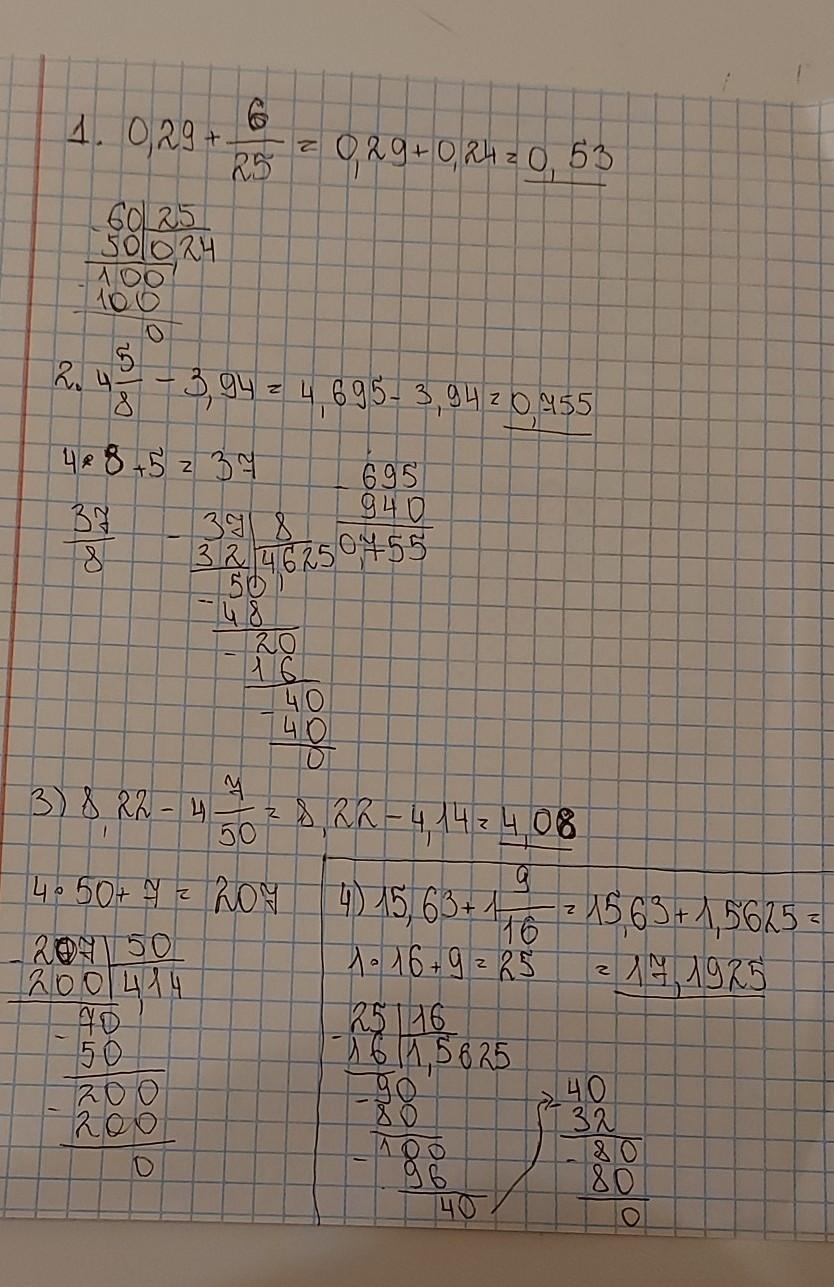 1. 0,29 + 6/25 = 0,29 + 0,24 = 0,53
- 60 | 25
50 | 0,24
- 100
100
0
2. 4 5/8 - 3,94 = 4,695 - 3,94 = 0,755
4 • 8 + 5 = 37
- 695
940
0,755
37/8
- 37 | 8
32 | 4,625
- 50
48
- 20
16
- 40
40
0
3) 8,22 - 4 7/50 = 8,22 - 4,14 = 4,08
4 • 50 + 7 = 207
- 207 | 50
200 | 4,14
- 70
50
- 200
200
0
4) 15,63 + 1 9/16 = 15,63 + 1,5625 =
1 • 16 + 9 = 25
= 17,1925
- 25 | 16
16 | 1,5625
- 90
80
- 100
96
40
- 40
32
- 80
80
0